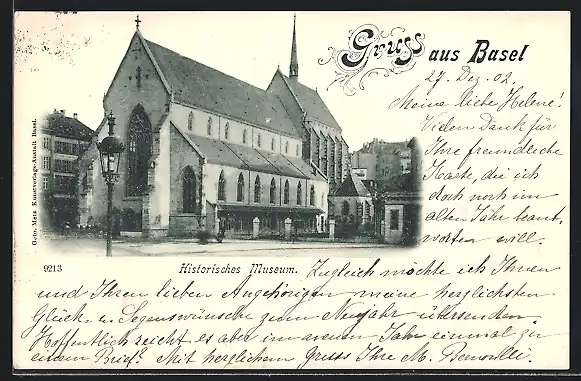 Gruss aus Basel
27. Dez. 02.
Meine liebe Helene!
Vielen Dank für
Ihre freundliche
Karte, die ich
doch noch im
alten Jahr beant,
worten will.
Gebr. Metz Kunstverlags-Anstalt Basel.
9213
Historisches Museum.
Zugleich möchte ich Ihnen
und Ihren lieben Angehörigen meine herzlichsten
Glück- u. Segenswünsche zum Neujahr übersenden.
Hoffentlich reicht es aber im neuen Jahr einmal zu
einem Brief. Mit herzlichem Gruss Ihre M. Bernoulli.